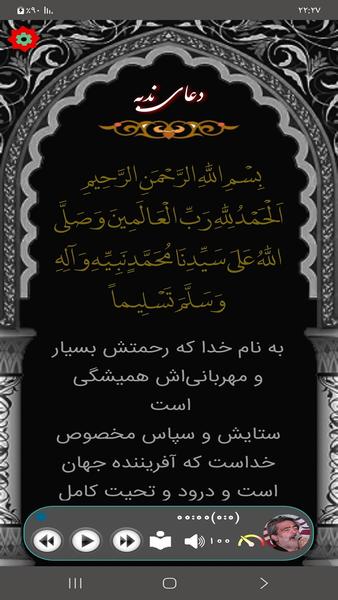 ۲۲:۲۷
٪۹۰
دعای ندبه
بِسْمِ اللهِ الرَّحْمَنِ الرَّحِيمِ
اَلْحَمْدُ لِلهِ رَبِّ الْعَالَمِينَ وَصَلَّى
اللهُ عَلَى سَيِّدِنَا مُحَمَّدٍ نَبِيِّهِ وَآلِهِ
وَسَلَّمَ تَسْلِيماً
به نام خدا که رحمتش بسیار
و مهربانی‌اش همیشگی
است
ستایش و سپاس مخصوص
خداست که آفریننده جهان
است و درود و تحیت کامل
۰۰:۰۰(۰:۰)
۱۰۰